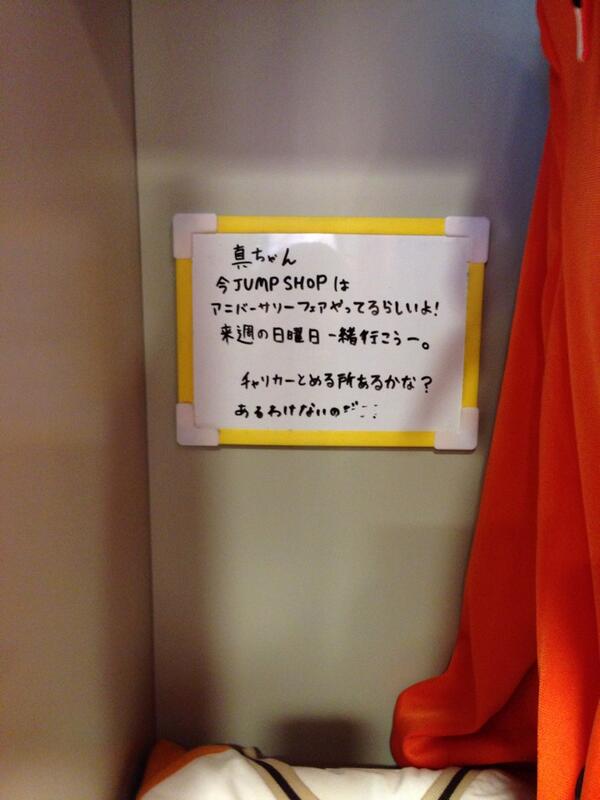 真ちゃん
今JUMP SHOPは
アニバーサリーフェアやってるらしいよ！
来週の日曜日一緒行こうー。
チャリカーとめる所あるかな？
あるわけないのだ